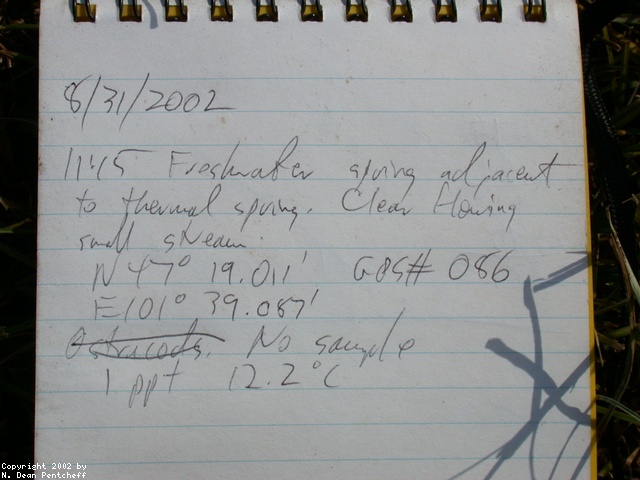 8/31/2002
11:15 Freshwater spring adjacent
to thermal spring. Clear flowing
small stream.
N 47° 19.011' GPS# 086
E 101° 39.087'
Ostracods. No sample
1 ppt 12.2°C
Copyright 2002 by
N. Dean Pentcheff